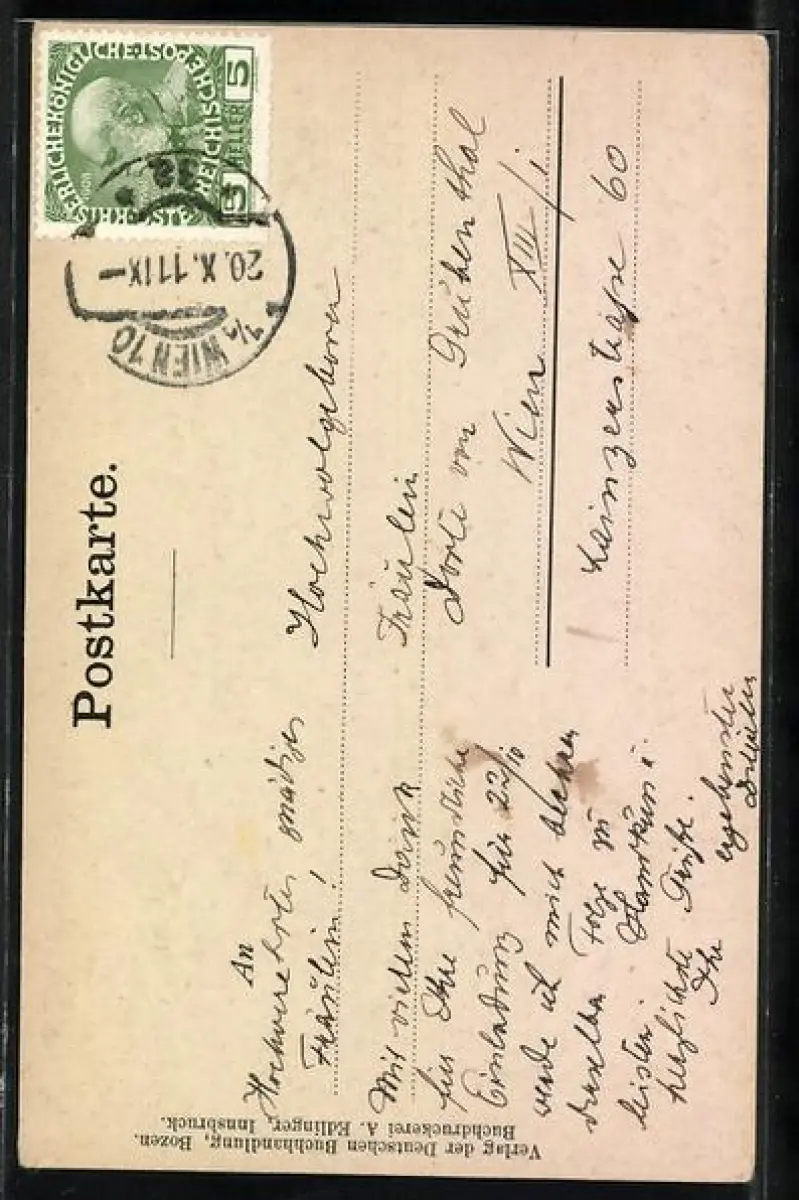 KAISERLICHE KÖNIGLICHE ÖSTERREICHISCHE POST
5 HELLER 5
1908
1/1 WIEN 10
20.X.11 IX-
Postkarte.
An
Hochverehrtes gnädiges
Fräulein!
Mit vielem Dank
für Ihre freundliche
Einladung für 22/10
werde ich mich beehren
derselben Folge zu
leisten. Handkuss
herzlichste Grüße.
Ihr
ergebenster
Hochwolgeboren
Fräulein
Dorte von Grubenthal
Wien XIII/1
Lainzerstraße 60
Verlag der Deutschen Buchhandlung, Bozen.
Buchdruckerei A. Edlinger, Innsbruck.